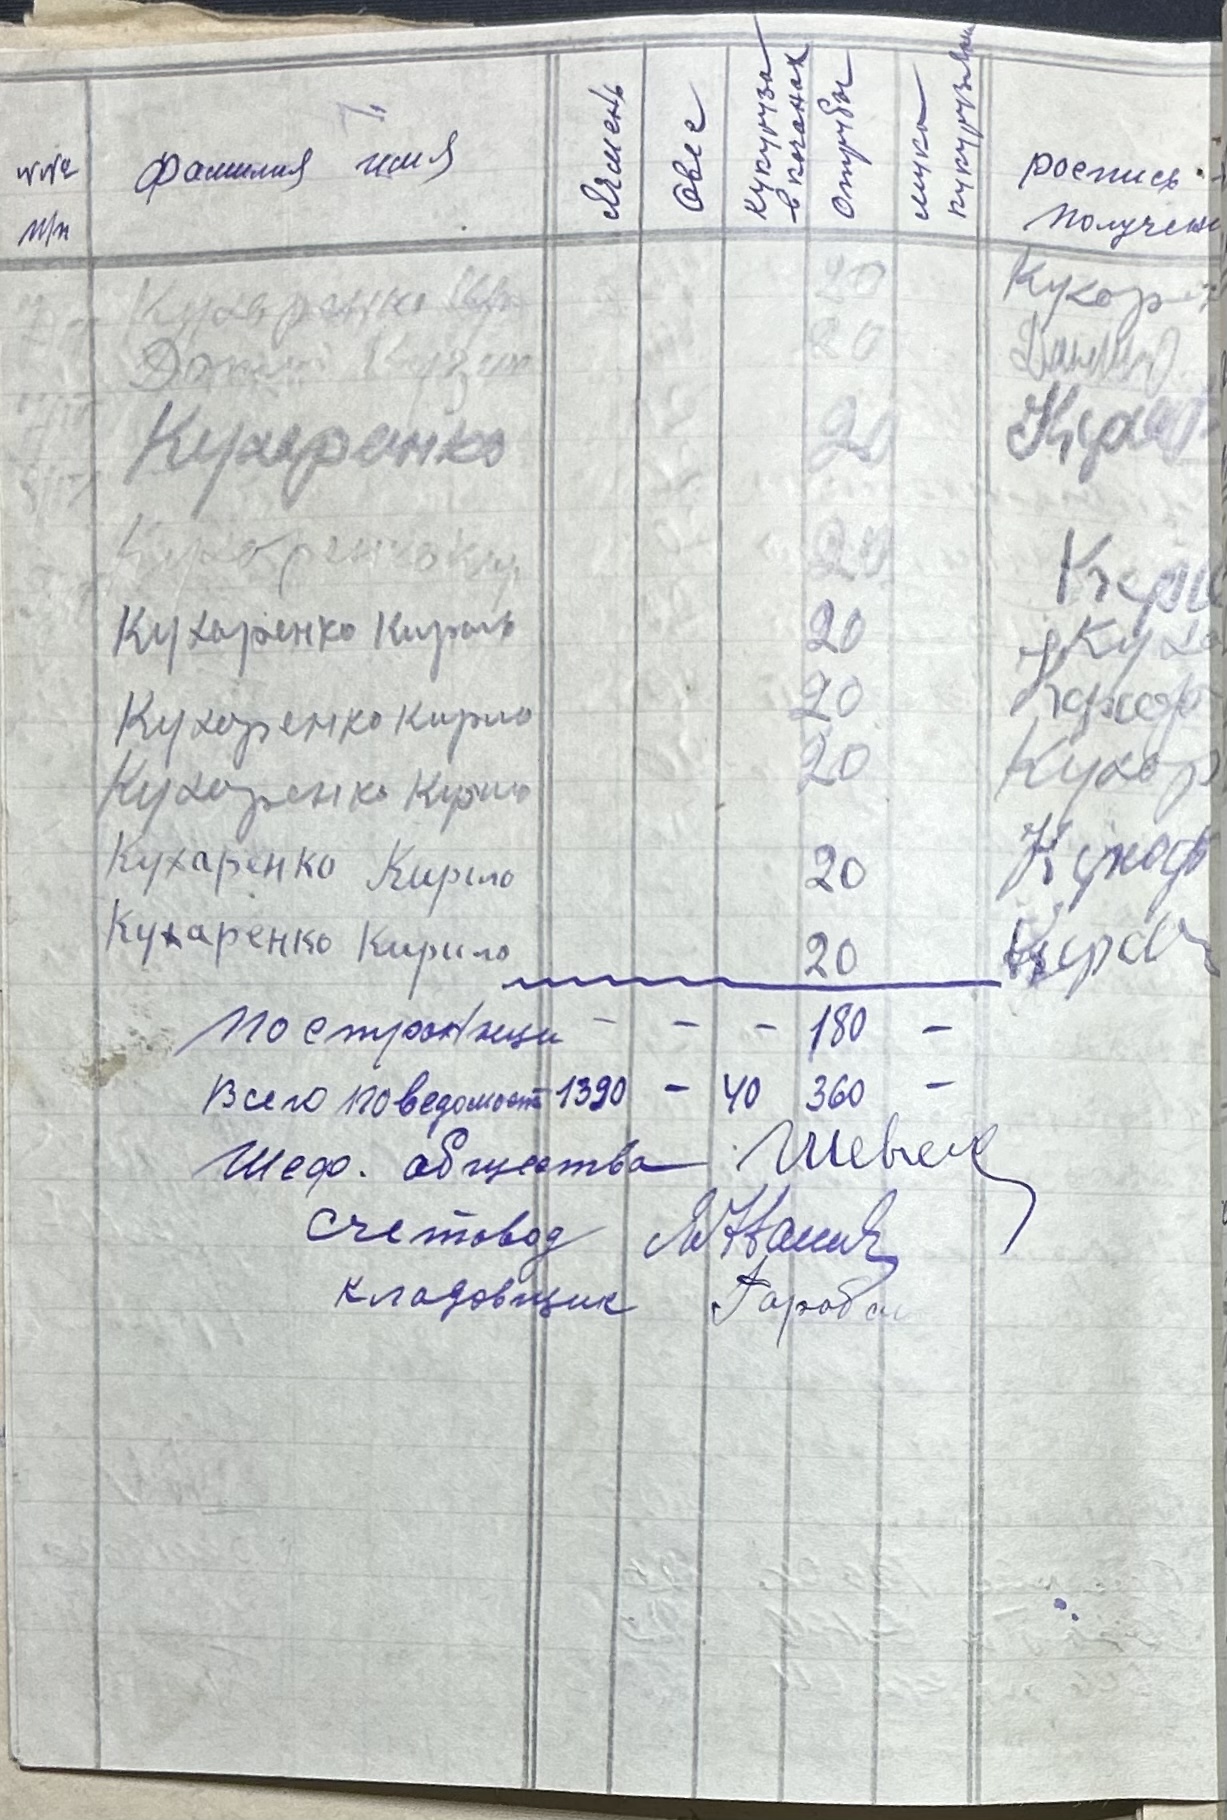 №№ п/п фамилия имя Ячмень Овес кукуруза в кочанах отруби мука кукурузная роспись получении
Кухаренко 20 Кухар
20
Кухаренко 20 Кухар
Кухаренко Кир 20
Кухаренко Кирило 20 Куха
Кухаренко Кирило 20 Кухар
Кухаренко Кирило 20 Кухар
Кухаренко Кирило 20 Кухар
Кухаренко Кирило 20
По странице - - - 180 -
Всего по ведомости 1390 - 40 360 -
Шеф. общества
Счетовод
Кладовщик